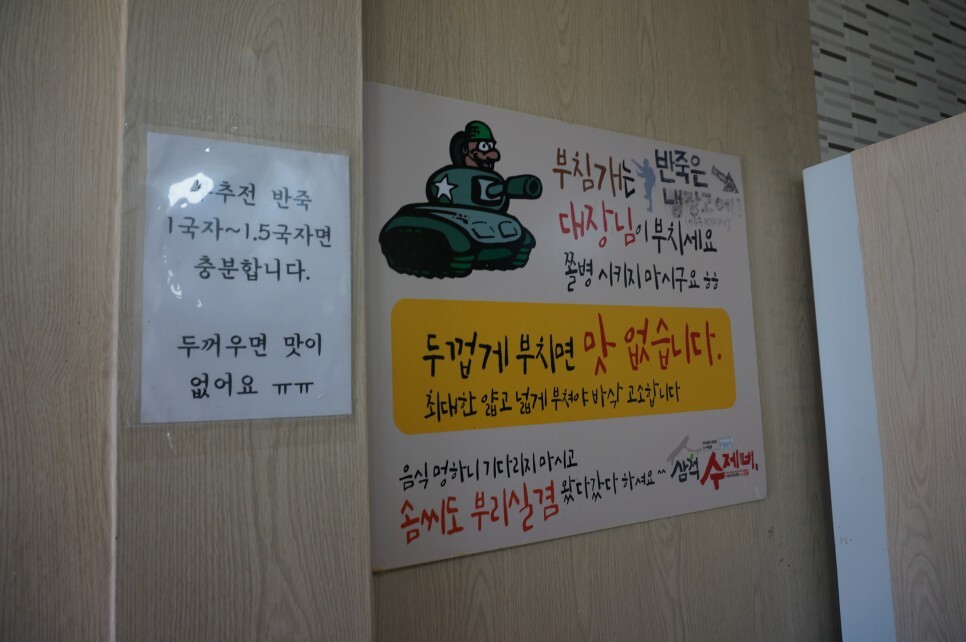 추전 반죽
1국자~1.5국자면
충분합니다.
두꺼우면 맛이
없어요 ㅠㅠ
부침개는
반죽은
냉장고에!
대장님이 부치세요
쫄병 시키지 마시구요 ㅎㅎ
두껍게 부치면 맛 없습니다.
최대한 얇고 넓게 부쳐야 바삭 고소합니다
음식 멍하니 기다리지 마시고
솜씨도 부리실겸 왔다갔다 하셔요^^
삼척 수제비.